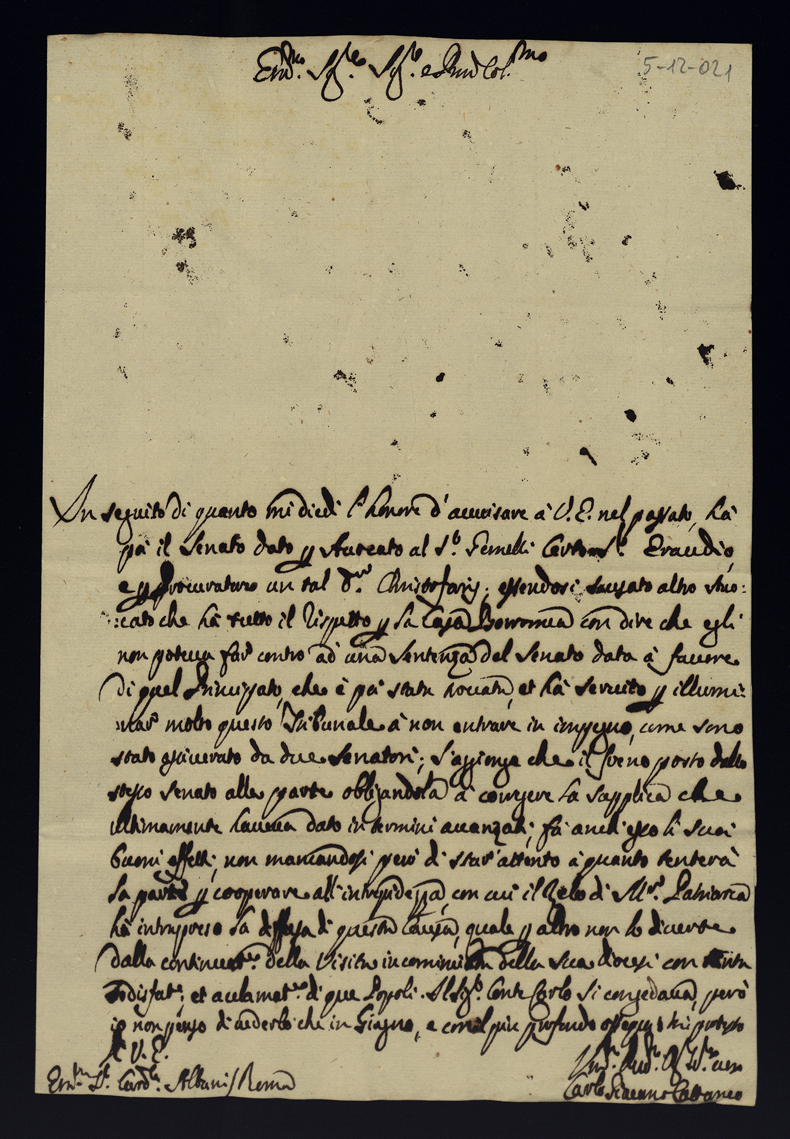 Em.mo Sig.re Sig.re e Pron Col.mo
5-12-021
In seguito di quanto mi diedi l'honore d'auuisare à V. E. nel passato, hà
già il Senato dato p Aureato al S.r Femelli
e p Procuratore un tal D.r Christofaris; essendosi scusato altro Auo:
:cato che hà tutto il rispetto p la Casa Borromea con dire che egli
non poteua far contro ad una Sentenza del Senato data à fauore
di quel Principato, che è già stata trouata, et hà seruito p illumi:
:nar molto questo Tribunale à non entrare in impegno, come sono
stato assicurato da due Senatori; s'aggionge che il freno posto dallo
stesso Senato alla parte obligandola à correggere la supplica che
ultimamente haueua dato in termini auanzati, fà anch'esso li suoi
buoni effetti, non mancandosi però di star' attento à quanto tenterà
la parte p cooperare all'intrepidezza, con cui il Zelo di Mr. Patriarca
hà intrapreso la difesa di questa Causa, quale p altro non lo diuerte
dalla continuat.e della Visita incominciata della sua diocesi con tanta
sodisfat.e, et aclamat.e di que Popoli. Il Sig.r Conte Carlo si congedaua, però
io non penso di uederlo che in Giugno, e con il più profondo ossequio mi protesto
A V. E.
Em.mo S.r Card.le Albani / Roma
Carlo Cattaneo